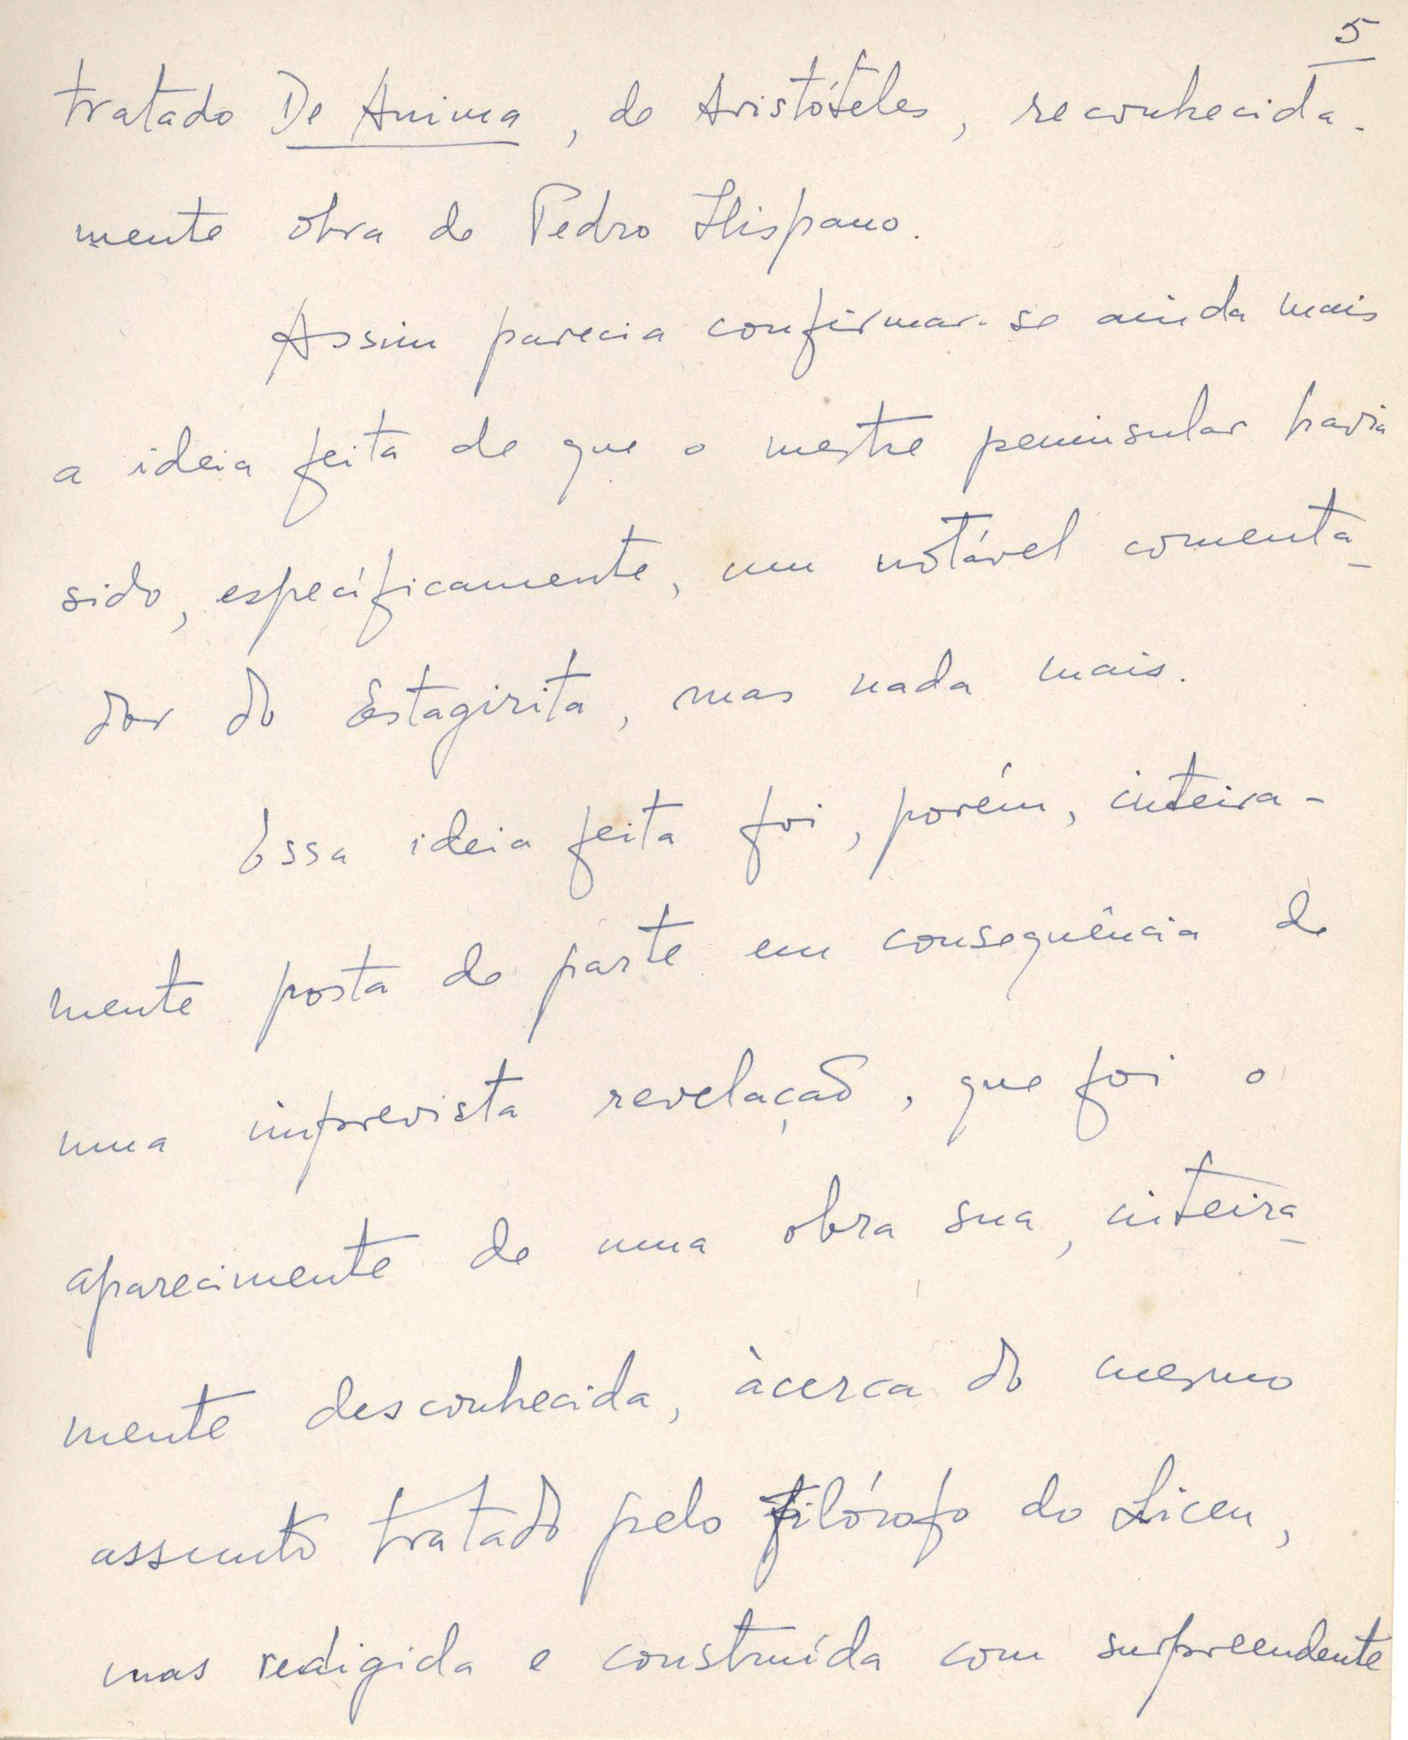 5
tratado De Anima, de Aristóteles, reconhecida-
mente obra de Pedro Hispano.
Assim parecia confirmar-se ainda mais
a ideia feita de que o mestre peninsular havia
sido, especìficamente, um notável comenta-
dor do Estagirita, mas nada mais.
Essa ideia feita foi, porém, inteira-
mente posta de parte em consequência de
uma imprevista revelação, que foi o
aparecimente de uma obra sua, inteira-
mente desconhecida, àcerca do mesmo
assunto tratado pelo filósofo do Liceu,
mas redigida e construída com surpreendente